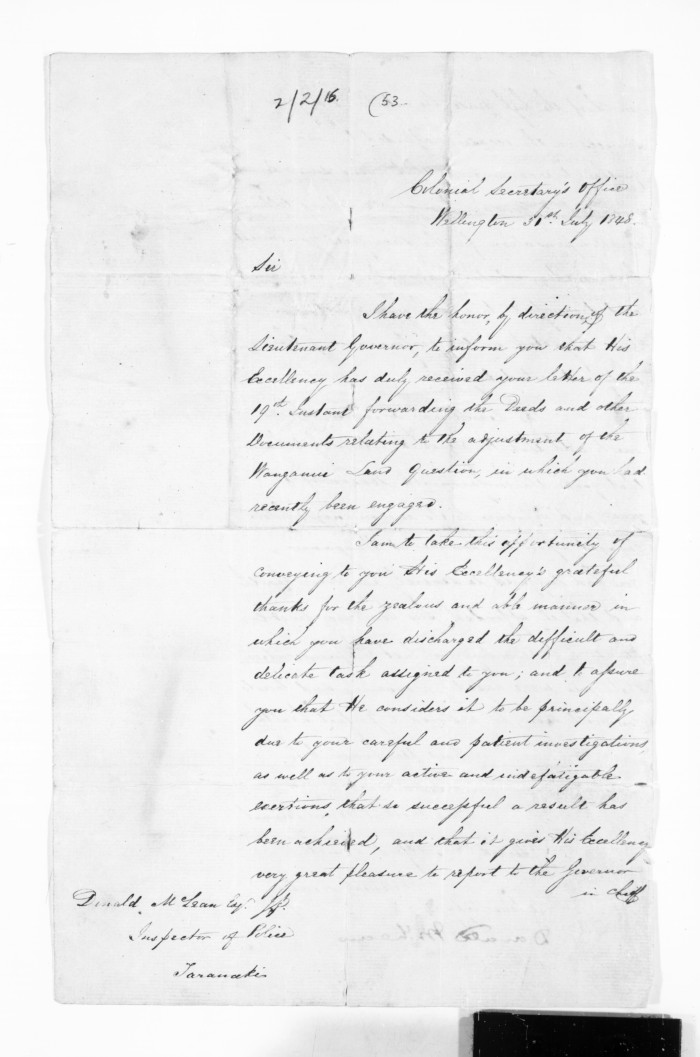 2/2/16. (53.
Colonial Secretary's Office
Wellington 31st July 1848.
Sir
I have the honor, by direction of the
Lieutenant Governor, to inform you that His
Excellency has duly received your letter of the
19th Instant forwarding the Deeds and other
Documents relating to the adjustment of the
Wanganui Land Question, in which you had
recently been engaged.
I am to take this opportunity of
conveying to you His Excellency's grateful
thanks for the zealous and able manner in
which you have discharged the difficult and
delicate task assigned to you; and to assure
you that He considers it to be principally
due to your careful and patient investigations,
as well as to your active and indefatigable
exertions, that so successful a result has
been achieved, and that it gives His Excellency
very great pleasure to report to the Governor
in Chief
Donald McLean Esqr.
Inspector of Police
Taranaki